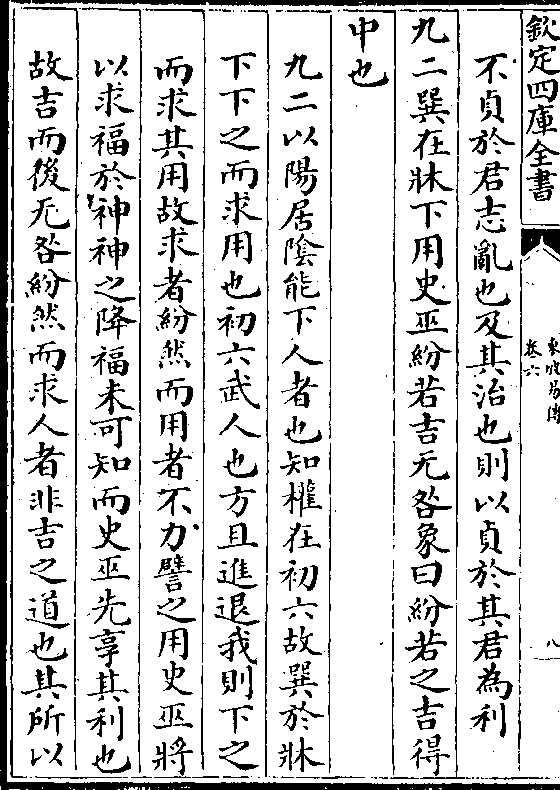 欽定四庫全書
東坡易傳
卷六
八
不貞於君志亂也及其治也則以貞於其君為利
九二巽在牀下用史巫紛若吉无咎象曰紛若之吉得
中也
九二以陽居陰能下人者也知權在初六故巽於牀
下下之而求用也初六武人也方且進退我則下之
而求其用故求者紛然而用者不力譬之用史巫將
以求福於神神之降福未可知而史巫先享其利也
故吉而後无咎紛然而求人者非吉之道也其所以